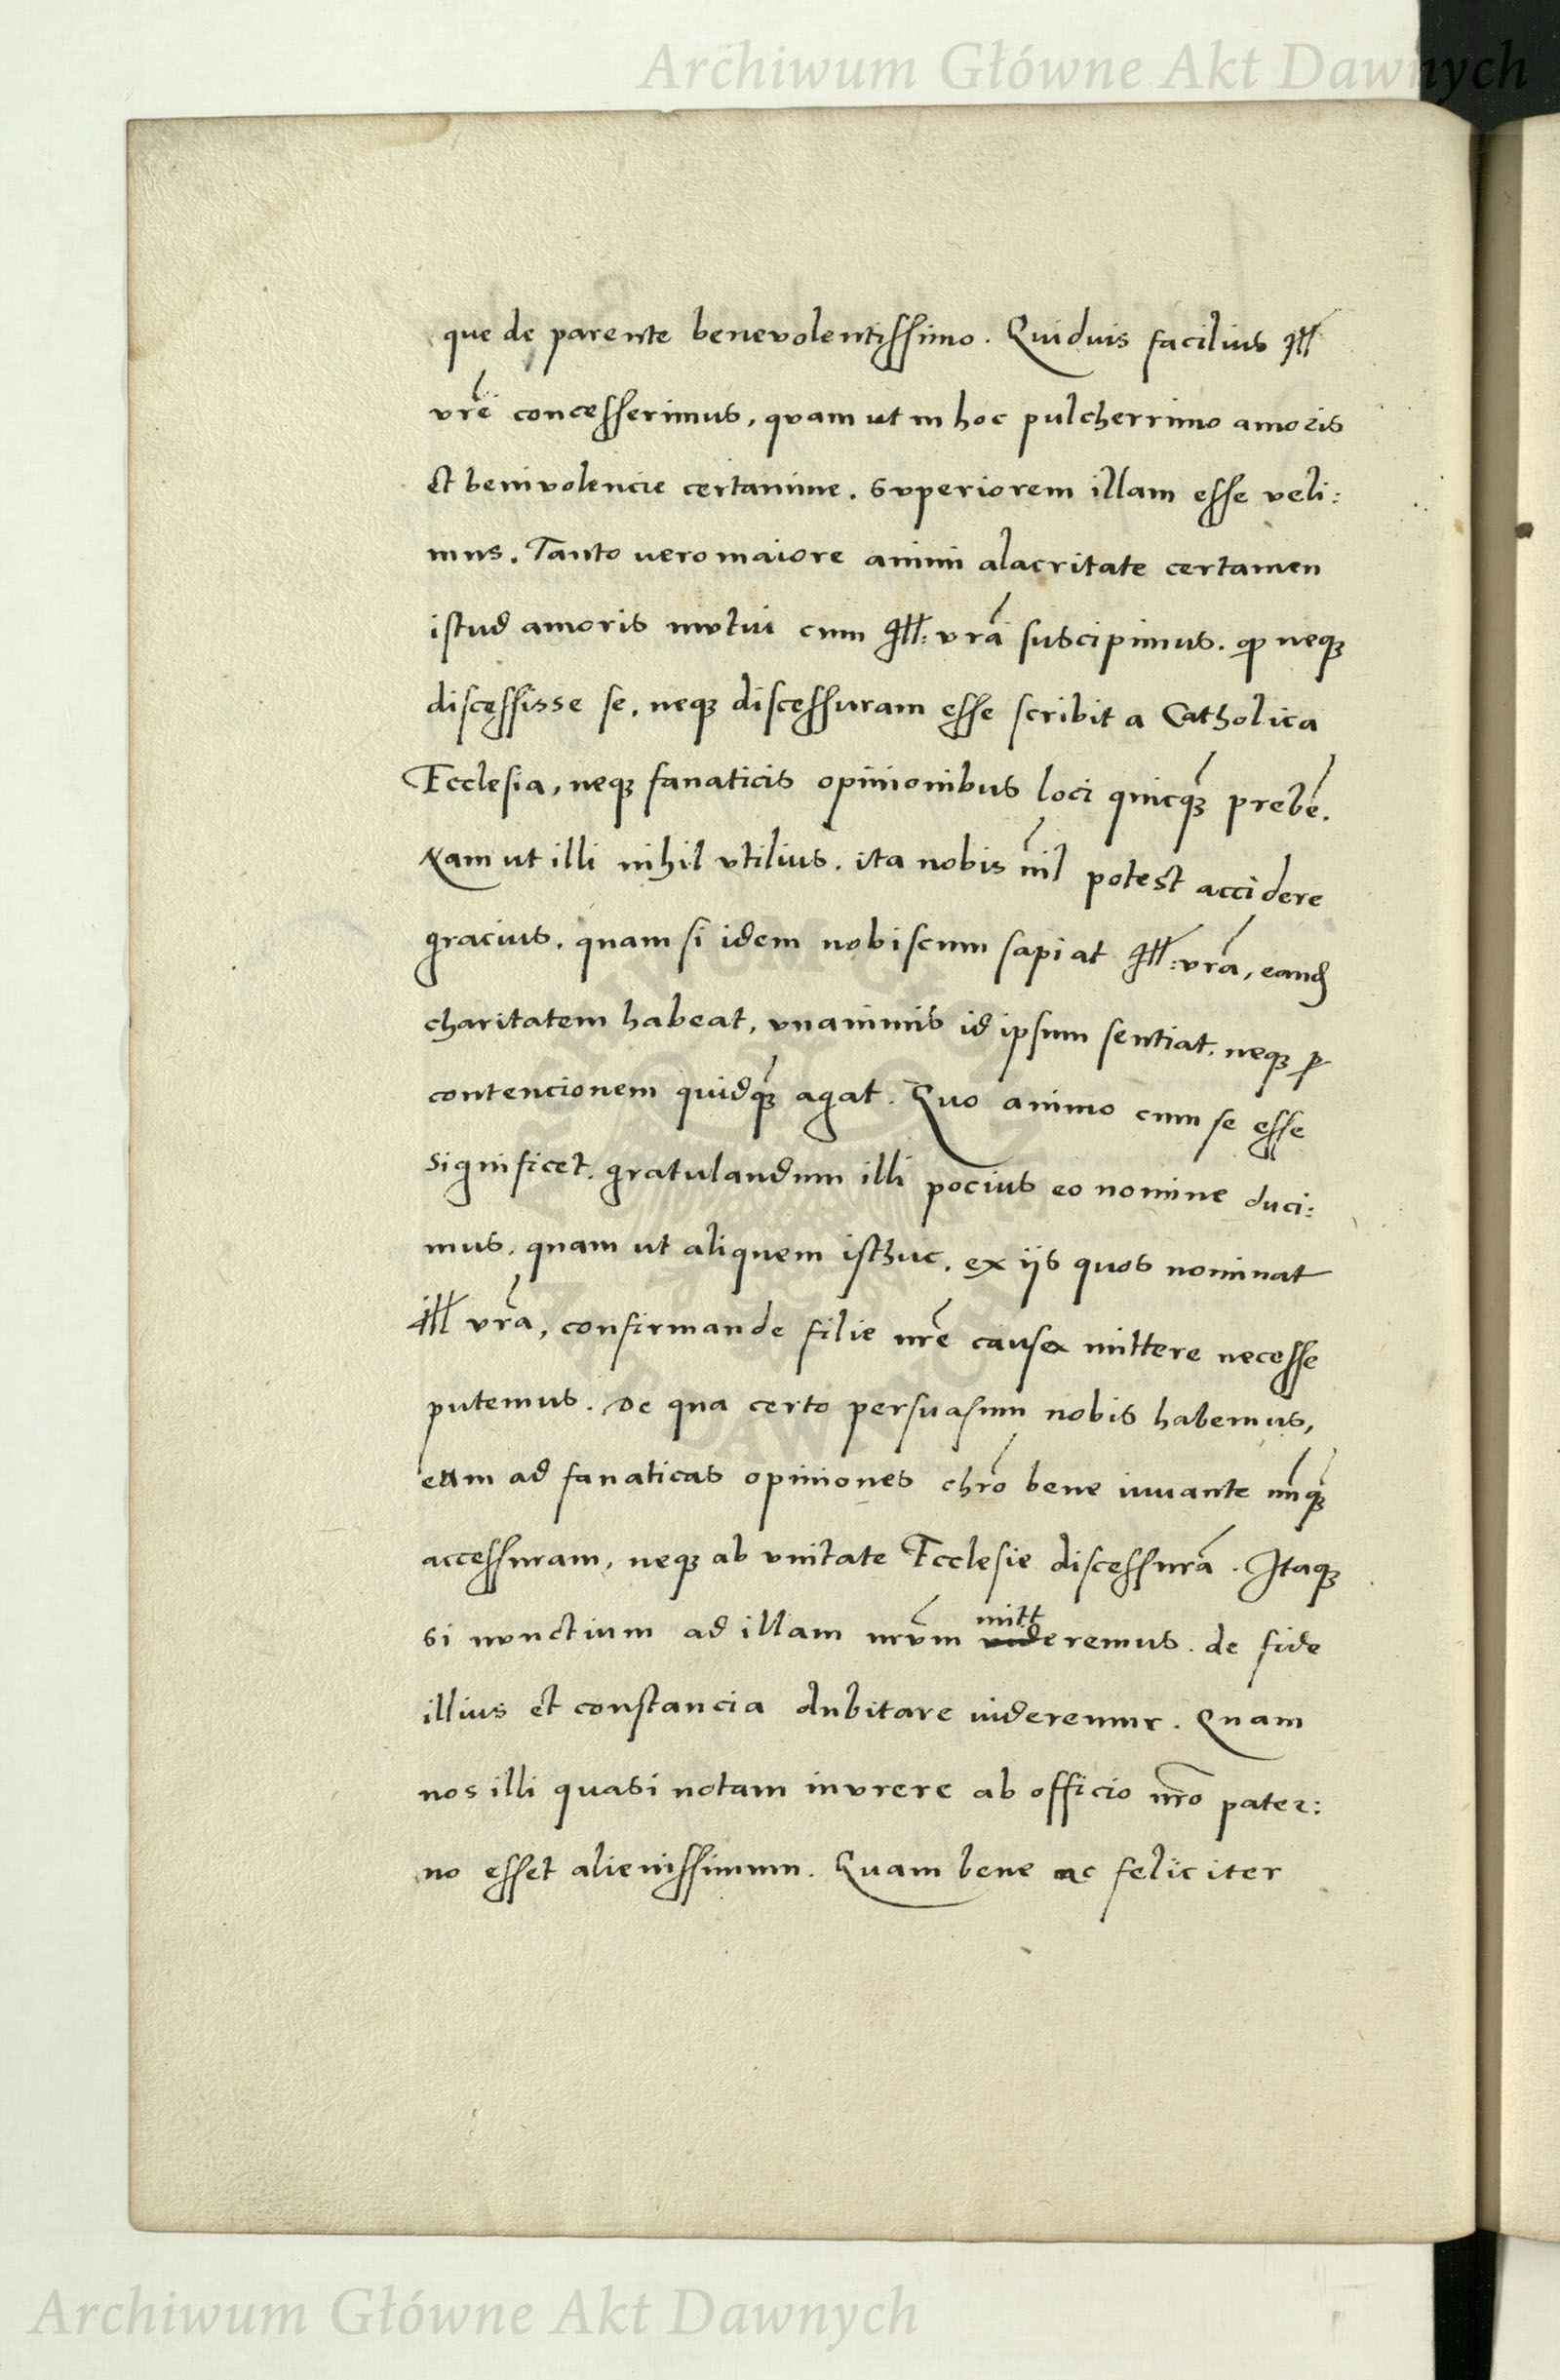 Archiwum Główne Akt Dawnych
que de parente benevolentissimo. Quiduis facilius Ill
vrẽ concesserimus, quam ut in hoc pulcherrimo amoris
et benivolencie certamine. Superiorem illam esse veli:
mus. Tanto vero maiore animi alacritate certamen
istud amoris mutui cum Ill: vrã suscipimus. qp neqz
discessisse se, neqz discessuram esse scribit a Catholica
Ecclesia, neqz fanaticis opinionibus loci quicqz̃ prebẽ.
Nam ut illi nihil utilius. ita nobis nĩl potest accidere
gracius. quam si idem nobiscum sapiat Ill: vrã, eand
charitatem habeat, unanimis id ipsum sentiat. neqz ꝑ
contencionem quidqz̃ agat. Quo animo cum se esse
significet. gratulandum illi pocius eo nomine duci:
mus. quam ut aliquem isthuc. ex iis quos nominat
Ill vrã, confirmande filie nrẽ causa mittere necesse
putemus. De qua certo persuasum nobis habemus,
eam ad fanaticas opiniones chrõ bene iuvante nũqz̃
accessuram, neqz ab unitate Ecclesie discessurã. Itaqz
mitt
si nunctium ad illam nrũm videremus. de fide
illius et constancia dubitare videremur. Quam
nos illi quasi notam inurere ab officio nrõ pater:
no esset alienissimum. Quam bene ac feliciter
ARCHIWUM GŁÓWNE AKT DAWNYCH
Archiwum Główne Akt Dawnych